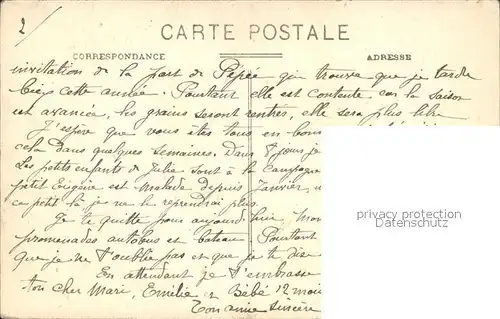 2/
CARTE POSTALE
CORRESPONDANCE
ADRESSE
invitation de la part de Pépée qui trouve que je tarde
bien cette année. Pourtant elle est contente car la saison
est avancée, les grains seront rentrés, elle sera plus libre
J'espère que vous êtes tous en bonne
cela dans quelques semaines. Dans 8 jours je
Les petits enfants de Julie sont à la Campagne
petit Eugène est Malade depuis Janvier,
ce petit là je ne le reprendrai plus.
Je te quitte pour aujourd'hui, Mon
promenades autobus et bateau. Pourtant
que je ne t'oublie pas et que je te dise
En attendant je t'embrasse
ton cher Mari, Emilie et Bébé 12 mois
Ton amie sincère
privacy protection
Datenschutz